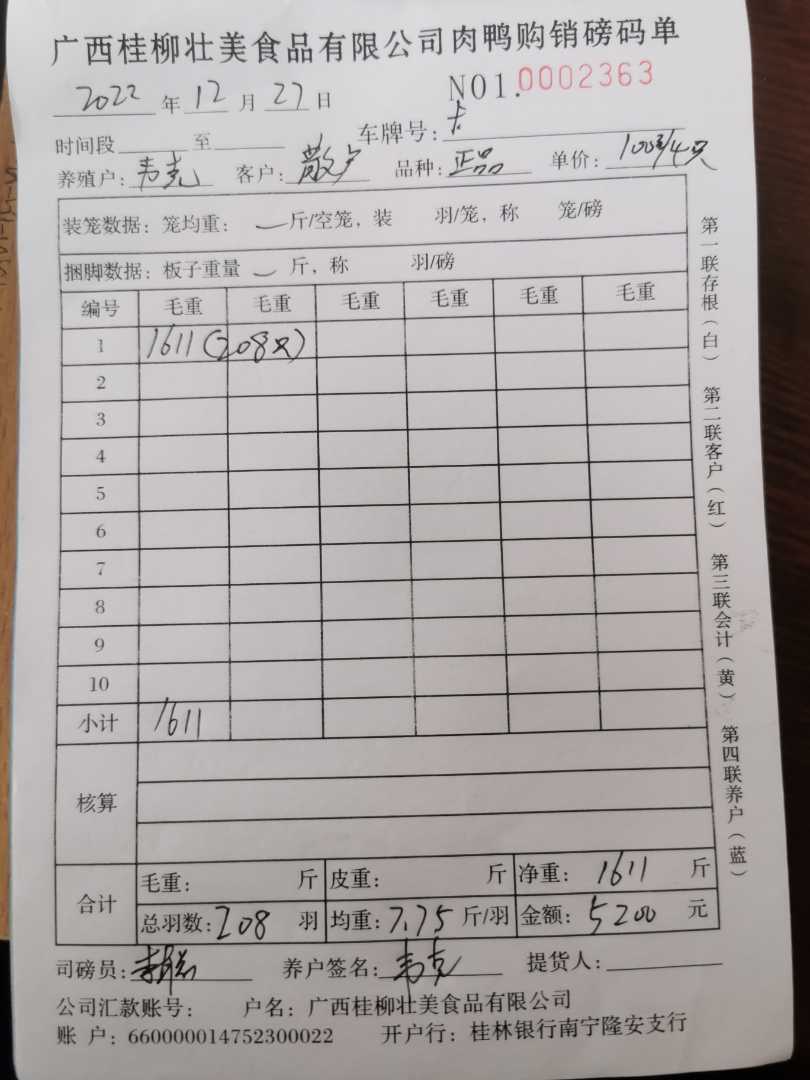 广西桂柳壮美食品有限公司肉鸭购销磅码单
2022年12月27日 NO1.0002363
时间段 至 车牌号:
养殖户:韦克 客户:散户 品种:正品 单价:100元/4只
装笼数据:笼均重: 一斤/空笼,装 羽/笼,称 笼/磅
捆脚数据:板子重量 一 斤,称 羽/磅
编号 毛重 毛重 毛重 毛重 毛重 毛重
1 1611(208只)
2
3
4
5
6
7
8
9
10
小计 1611
核算
合计 毛重: 斤 皮重: 斤 净重: 1611 斤
总羽数:208 羽 均重:7.75 斤/羽 金额:5200 元
司磅员: 养户签名:韦克 提货人:
公司汇款账号: 户名:广西桂柳壮美食品有限公司
账 户:660000014752300022 开户行:桂林银行南宁隆安支行
第一联存根(白) 第二联客户(红) 第三联会计(黄) 第四联养户(蓝)